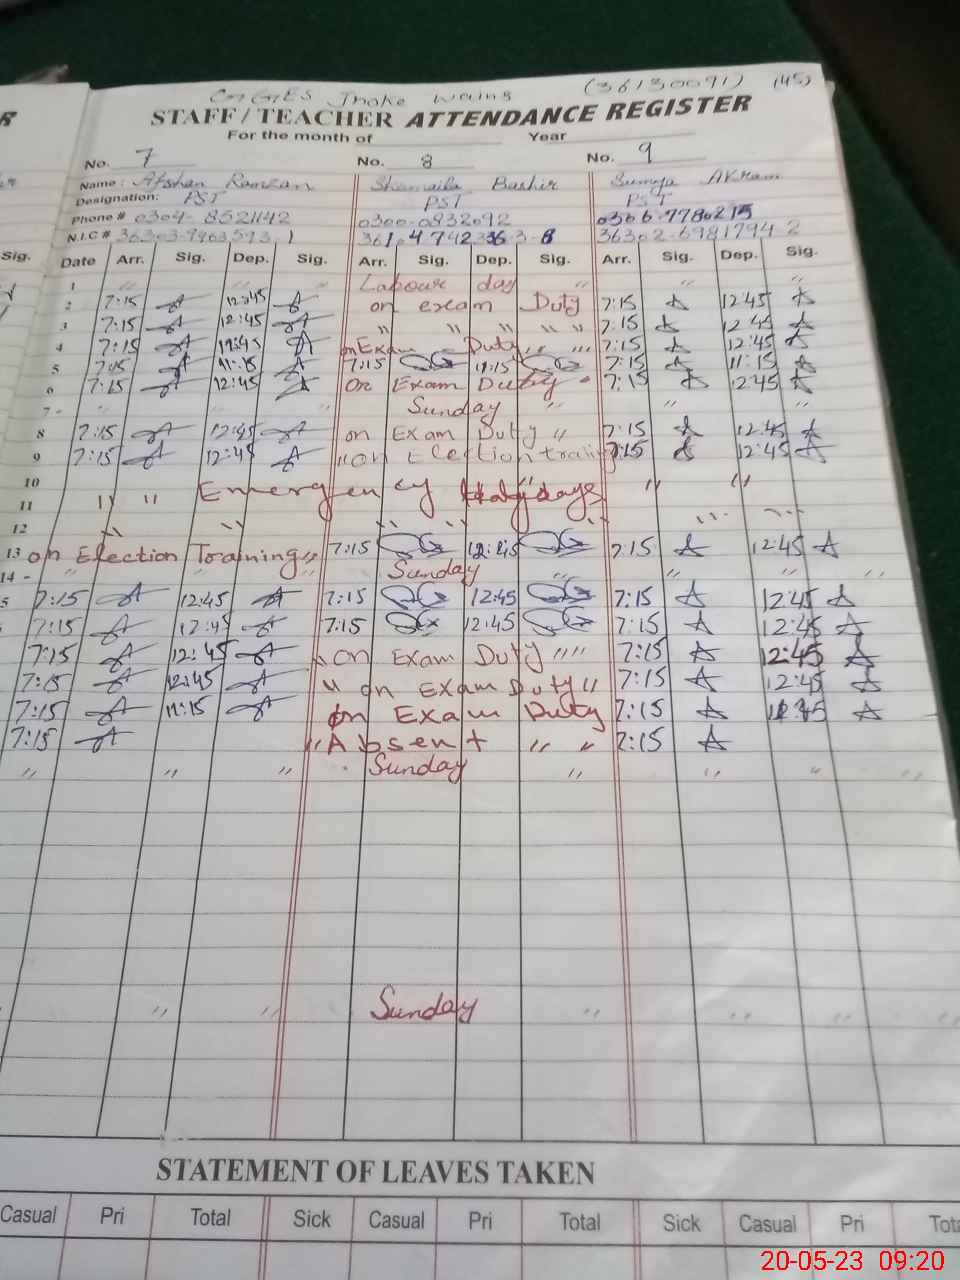 GGES Jhoke Wains (36130091) (45)
STAFF / TEACHER ATTENDANCE REGISTER
For the month of Year
No. 7 No. 8 No. 9
Name: Afshan Ramzan Shamaila Bashir Sumya Akram
Designation: PST PST PST
Phone # 0304-8521142 0300-0832092 0306-7780215
N.I.C #
Sig. Date Arr. Sig. Dep. Sig. Arr. Sig. Dep. Sig. Arr. Sig. Dep. Sig.
1 " " Labour day " " "
2 7:15 12:45 on exam Duty 7:15 12:45
3 7:15 12:45 " " " " " 7:15 12:45
4 7:15 12:45 on Exam Duty " " 7:15 12:45
5 7:15 11:15 7:15 11:15 7:15 11:15
6 7:15 12:45 on Exam Duty 7:15 12:45
7 - " " " Sunday " " "
8 7:15 12:45 on Exam Duty " 7:15 12:45
9 7:15 12:45 " on Election training 7:15 12:45
10
11 " " Emergency Holydays " "
12 " " " " " " "
13 on Election Training " 7:15 12:45 7:15 12:45
14 - " " " Sunday " " " "
5 7:15 12:45 7:15 12:45 7:15 12:45
7:15 12:45 7:15 12:45 7:15 12:45
7:15 12:45 " on Exam Duty " " 7:15 12:45
7:15 12:45 " on Exam Duty " 7:15 12:45
7:15 11:15 on Exam Duty 7:15
7:15 " Absent " " 7:15
" " " Sunday " " " "
" " Sunday " " " "
STATEMENT OF LEAVES TAKEN
Casual Pri Total Sick Casual Pri Total Sick Casual Pri Tot
20-05-23 09:20